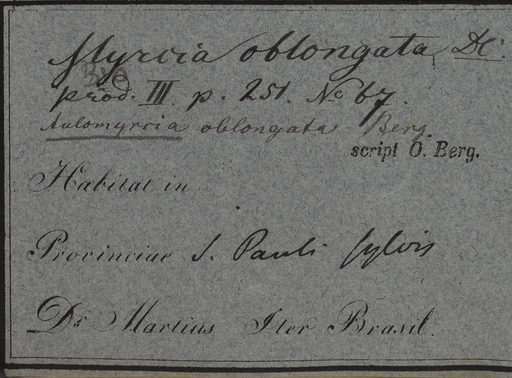 Myrcia oblongata DC.
prod. III. p. 251. No 67.
Aulomyrcia oblongata Berg.
script O. Berg.
Habitat in
Provinciae S. Pauli sylvis
Dr. Martius Iter Brasil.